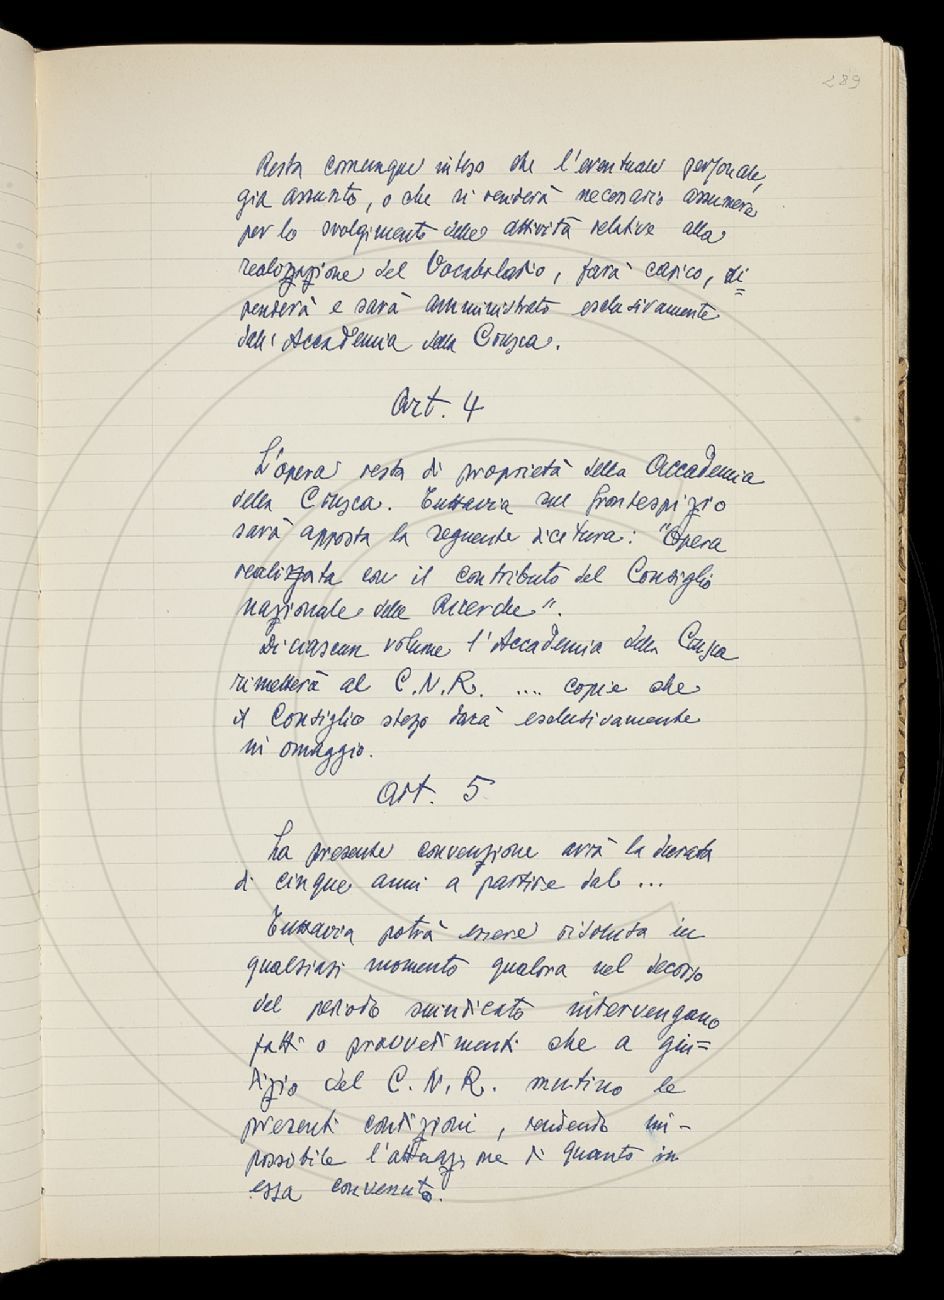 289
Resta comunque inteso che l'eventuale personale,
già assunto, o che si renderà necessario assumere
per lo svolgimento delle attività relative alla
realizzazione del Vocabolario, farà carico, di=
penderà e sarà amministrato esclusivamente
dall'Accademia della Crusca.
Art. 4
L'opera resta di proprietà della Accademia
della Crusca. Tuttavia sul frontespizio
sarà apposta la seguente dicitura: "Opera
realizzata con il contributo del Consiglio
nazionale delle Ricerche".
Di ciascun volume l'Accademia della Crusca
rimetterà al C.N.R. .... copie che
il Consiglio stesso darà esclusivamente
in omaggio.
Art. 5
La presente convenzione avrà la durata
di cinque anni a partire dal ...
Tuttavia potrà essere risoluta in
qualsiasi momento qualora nel decorso
del periodo suindicato intervengano
fatti o provvedimenti che a giu=
dizio del C.N.R. mutino le
presenti condizioni, rendendo im-
possibile l'attuazione di quanto in
essa convenuto.